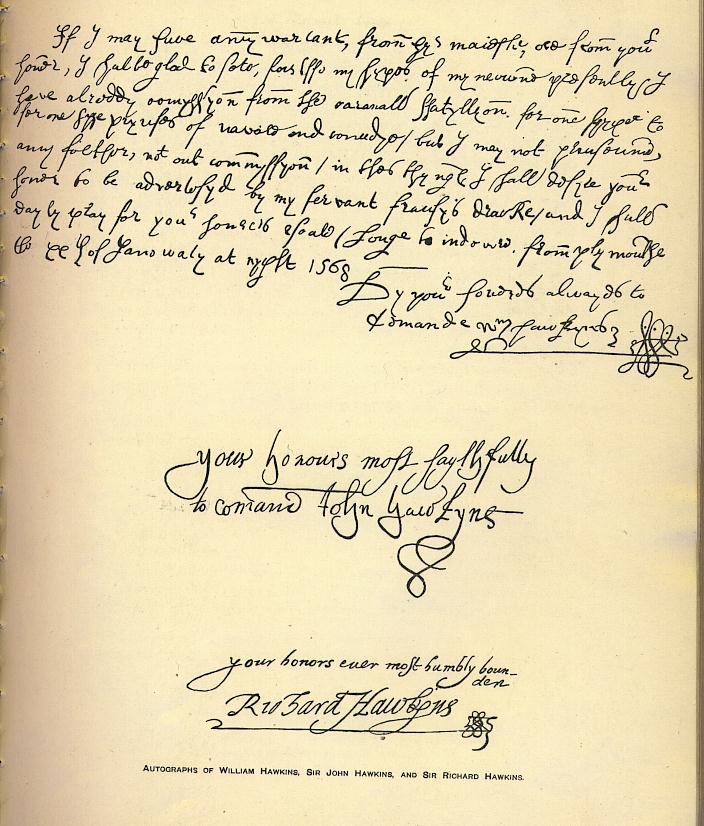 If I may have anny warrant, from hys maiestie, ore from yor
honor, I shalbe glad to sete, forthe my shypes of my newene presently, I
have alreddy comyssyon from the Cardnall Shatyllyon. for one shype to
serve prynses of navare and condye / but I may not presume
anny fether, with out comyssyon / in thes thyngs I shall desyre yor
honor to be advertesyd by my servant fransys dracke, and I shall
dayly pray for yor honors estate / longe to indowre. from plymouthe
the xxth of Janowary at nyght 1568
By yor honors always to
Comande Wm hawkyns
your honours most faythfully
to comand John hawkyns
your honors ever most humbly boun-
den
Richard Hawkyns
AUTOGRAPHS OF WILLIAM HAWKINS, SIR JOHN HAWKINS, AND SIR RICHARD HAWKINS.